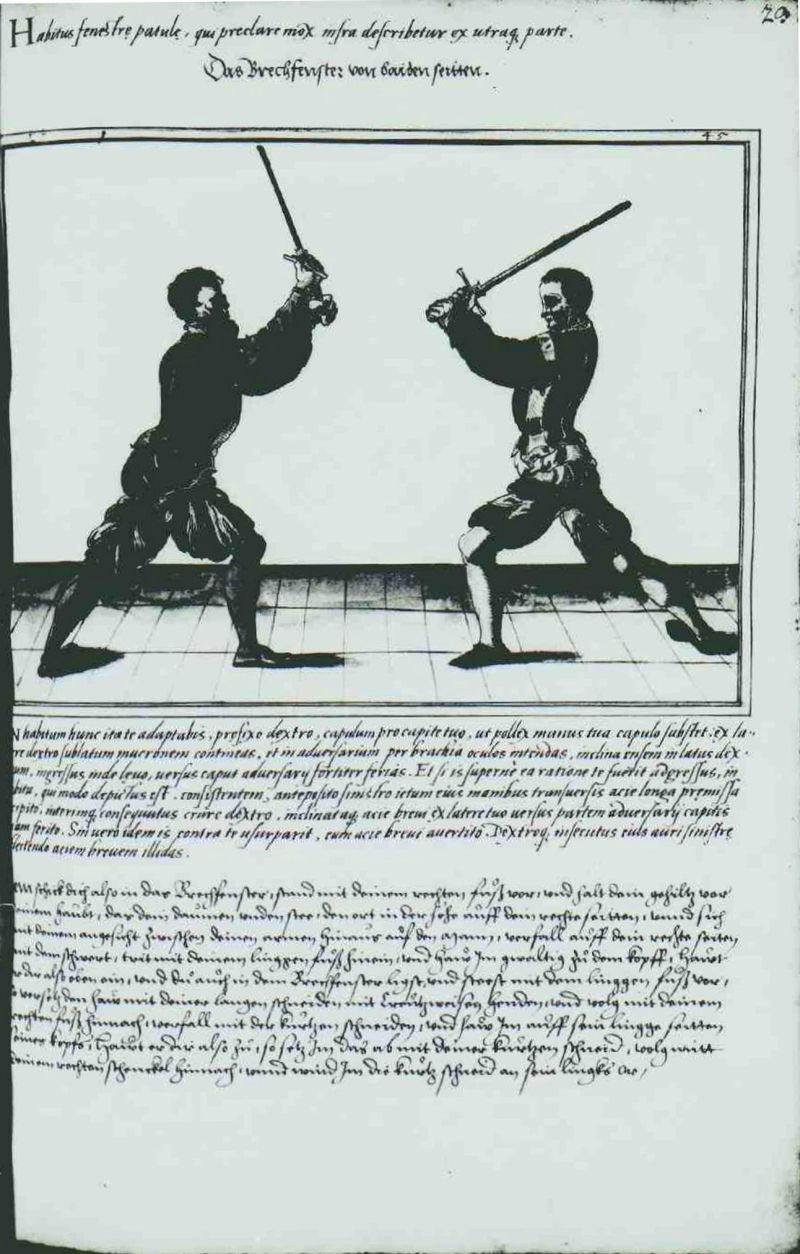 29
Habitus fenestre patule, qui preclare mox infra describetur ex utraq parte.
Das Brechfenster von baiden seitten.
45
N habitum hunc ita te adaptabis, prefixo dextro, capulum pro capite tuo, ut pollex manus tua capulo substet. ex la-
re dextro sublatum mucronem contineas, et in adversarium per brachia oculos intendas, inclina ensem in latus dex-
um, ingressus inde levo, versus caput adversarÿ fortiter ferias. Et si is superne ea ratione te fuerit adgressus, in
bitu, qui modo depictus est. consistentem, anteposito sinistro ictum eius manibus transversis acie longa premissa
cipito, interimq consequutus crure dextro, inclinataq acie brevi ex latere tuo versus partem adversarÿ capitis
am ferito. Sin vero idem is contra te usurparit, eum acie brevi avertito. Dextroq insecutus eius auri sinistre
lectendo aciem brevem illidas.
em schick dich also in das Brechfenster, stand mit deinem rechten fuß vor, und halt dein gehiltz vor
einem haubt, das dein daumen unden stee, den ort in der höhe auff dein rechte seitten, unnd sich
mit deinem angesicht zwischen deinen armen hinaus auf den mann, verfall auff dein rechte seiten
mit dem schwert, trit mit deinem linggen fuß hinein, und haw Im gwaltig zu dem kopff, hawt
er dir also oben ein, und du auch in dem Brechfenster ligst, und steest mit dem linggen fuß vor,
so versetz den haw mit deiner langen schneiden mit Creutzweisen henden, und volg mit deinem
rechten fuß hinnach, verfall mit der kurtzen schneiden, und haw Im auff sein lingge seitten
seines kopfs, Hawt er dir also zu, so setz Im das ab mit deiner kurtzen schneid, volg mitt
deinem rechten schenckel hinnach, unnd wind Im die kurtz schneid an sein linggs or,